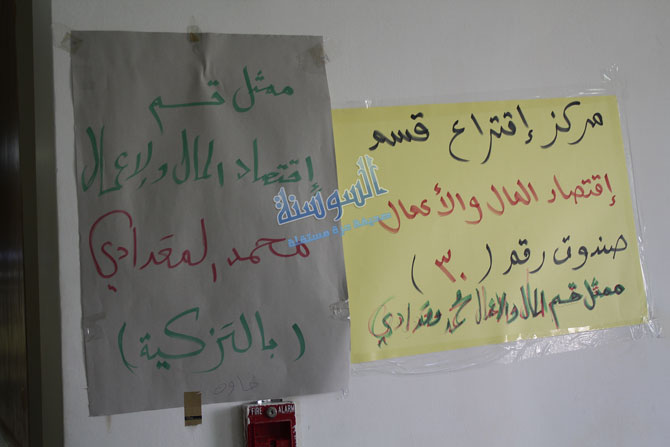 مركز إقتراع قسم
إقتصاد المال والأعمال
صندوق رقم (٣٠)
ممثل قسم المال والاعمال محمد مقدادي
ممثل قسم
إقتصاد المال والاعمال
محمد المقدادي
(بالتزكية)
السوسنة
صحيفة حرة مستقلة
FIRE ALARM